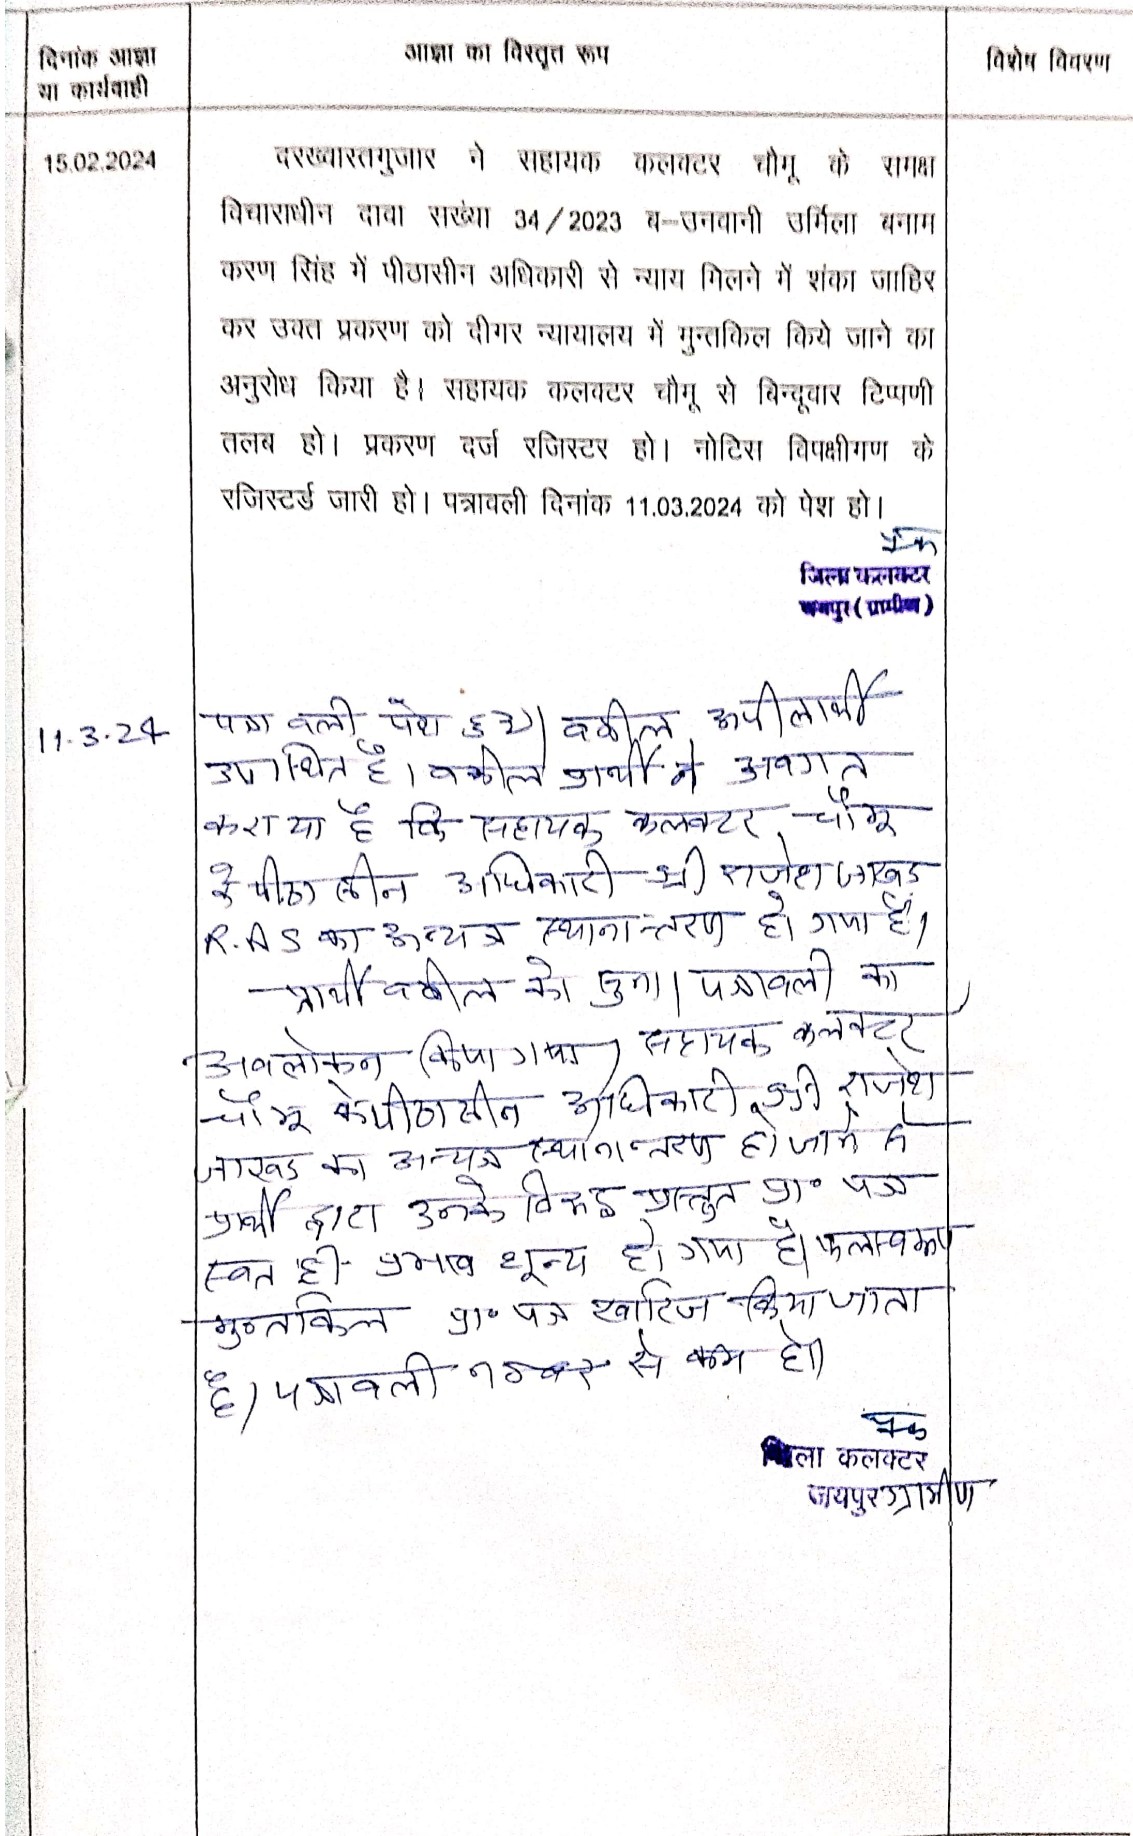 दिनांक आज्ञा
या कार्यवाही
आज्ञा का विस्तृत रूप
विशेष विवरण
15.02.2024
दरख्वास्तगुजार ने सहायक कलक्टर चौमू के समक्ष
विचाराधीन दावा सख्ंया 34/2023 ब–उनवानी उर्मिला बनाम
करण सिंह में पीठासीन अधिकारी से न्याय मिलने में शंका जाहिर
कर उक्त प्रकरण को दीगर न्यायालय में मुन्तकिल किये जाने का
अनुरोध किया है। सहायक कलक्टर चौमू से बिन्दूवार टिप्पणी
तलब हो। प्रकरण दर्ज रजिस्टर हो। नोटिस विपक्षीगण के
रजिस्टर्ड जारी हो। पत्रावली दिनांक 11.03.2024 को पेश हो।
जिला कलक्टर
जयपुर (ग्रामीण)
11.3.24
पत्रावली पेश हुई। वकील अपीलार्थी
उपस्थित है। वकील प्रार्थी ने अवगत
कराया है कि सहायक कलक्टर, चौमू
के पीठासीन अधिकारी श्री राजेश जाखड
R.A.S का अन्यत्र स्थानान्तरण हो गया है।
प्रार्थी वकील को सुना। पत्रावली का
अवलोकन किया गया। सहायक कलक्टर
चौमू के पीठासीन अधिकारी श्री राजेश
जाखड का अन्यत्र स्थानान्तरण हो जाने से
प्रार्थी द्वारा उनके विरूद्ध प्रस्तुत प्रा॰ पत्र
स्वत ही प्रभाव शून्य हो गया है। फलस्वरूप
मुन्तकिल प्रा॰ पत्र खारिज किया जाता
है। पत्रावली नम्बर से कम हो।
जिला कलक्टर
जयपुर ग्रामीण